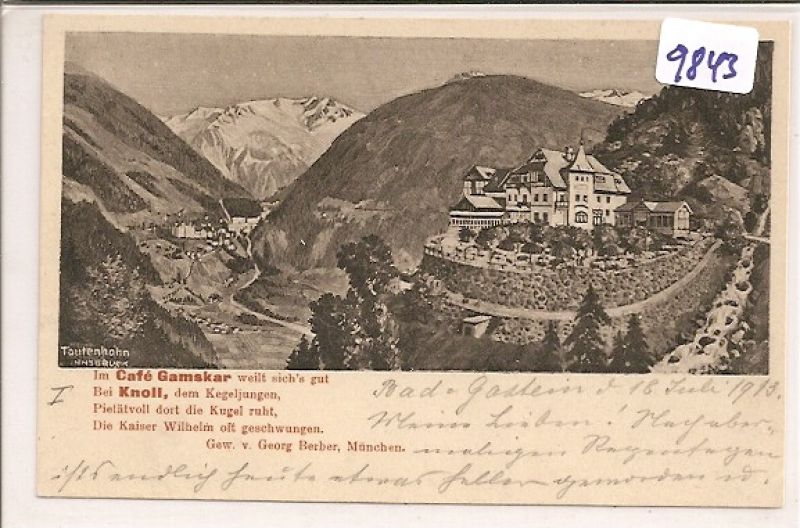 9843
Tautenhahn
INNSBRUCK
Im Café Gamskar weilt sich's gut
Bei Knoll, dem Kegeljungen,
Pietätvoll dort die Kugel ruht,
Die Kaiser Wilhelm oft geschwungen.
Gew. v. Georg Berber, München.
I
Bad-Gastein d 18 Juli 1913.
Meine Lieben! Nach aber-
maligen Regentagen
ists endlich heute etwas heller geworden u.